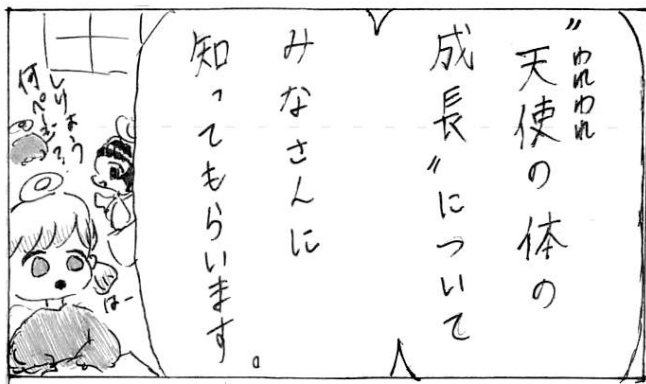 〃われわれ
天使の体の
成長〃について
みなさんに
知ってもらいます。
しりょう
何ページ?
はー